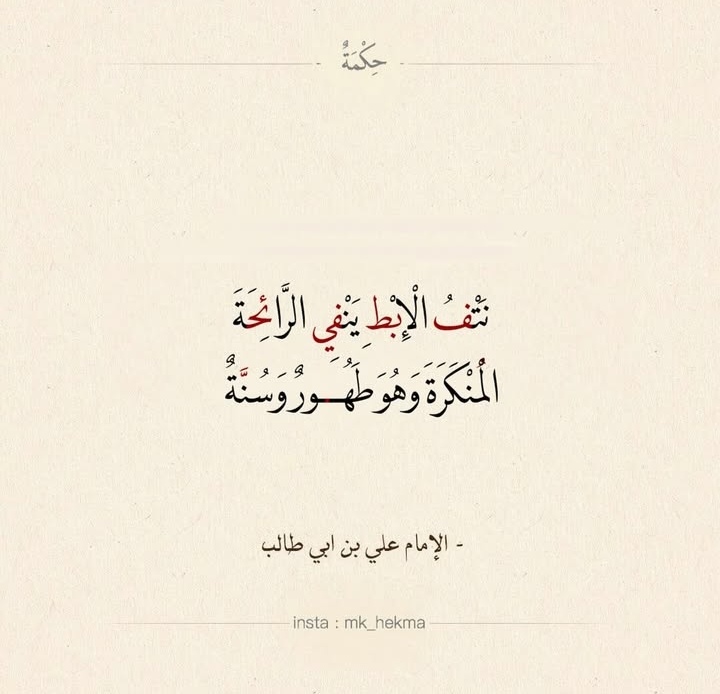 حِكْمَةٌ
نَتْفُ الْإِبْطِ يَنْفِي الرَّائِحَةَ
الْمُنْكَرَةَ وَهُوَ طَهُـورٌ وَسُنَّةٌ
- الإمام علي بن ابي طالب
insta : mk_hekma